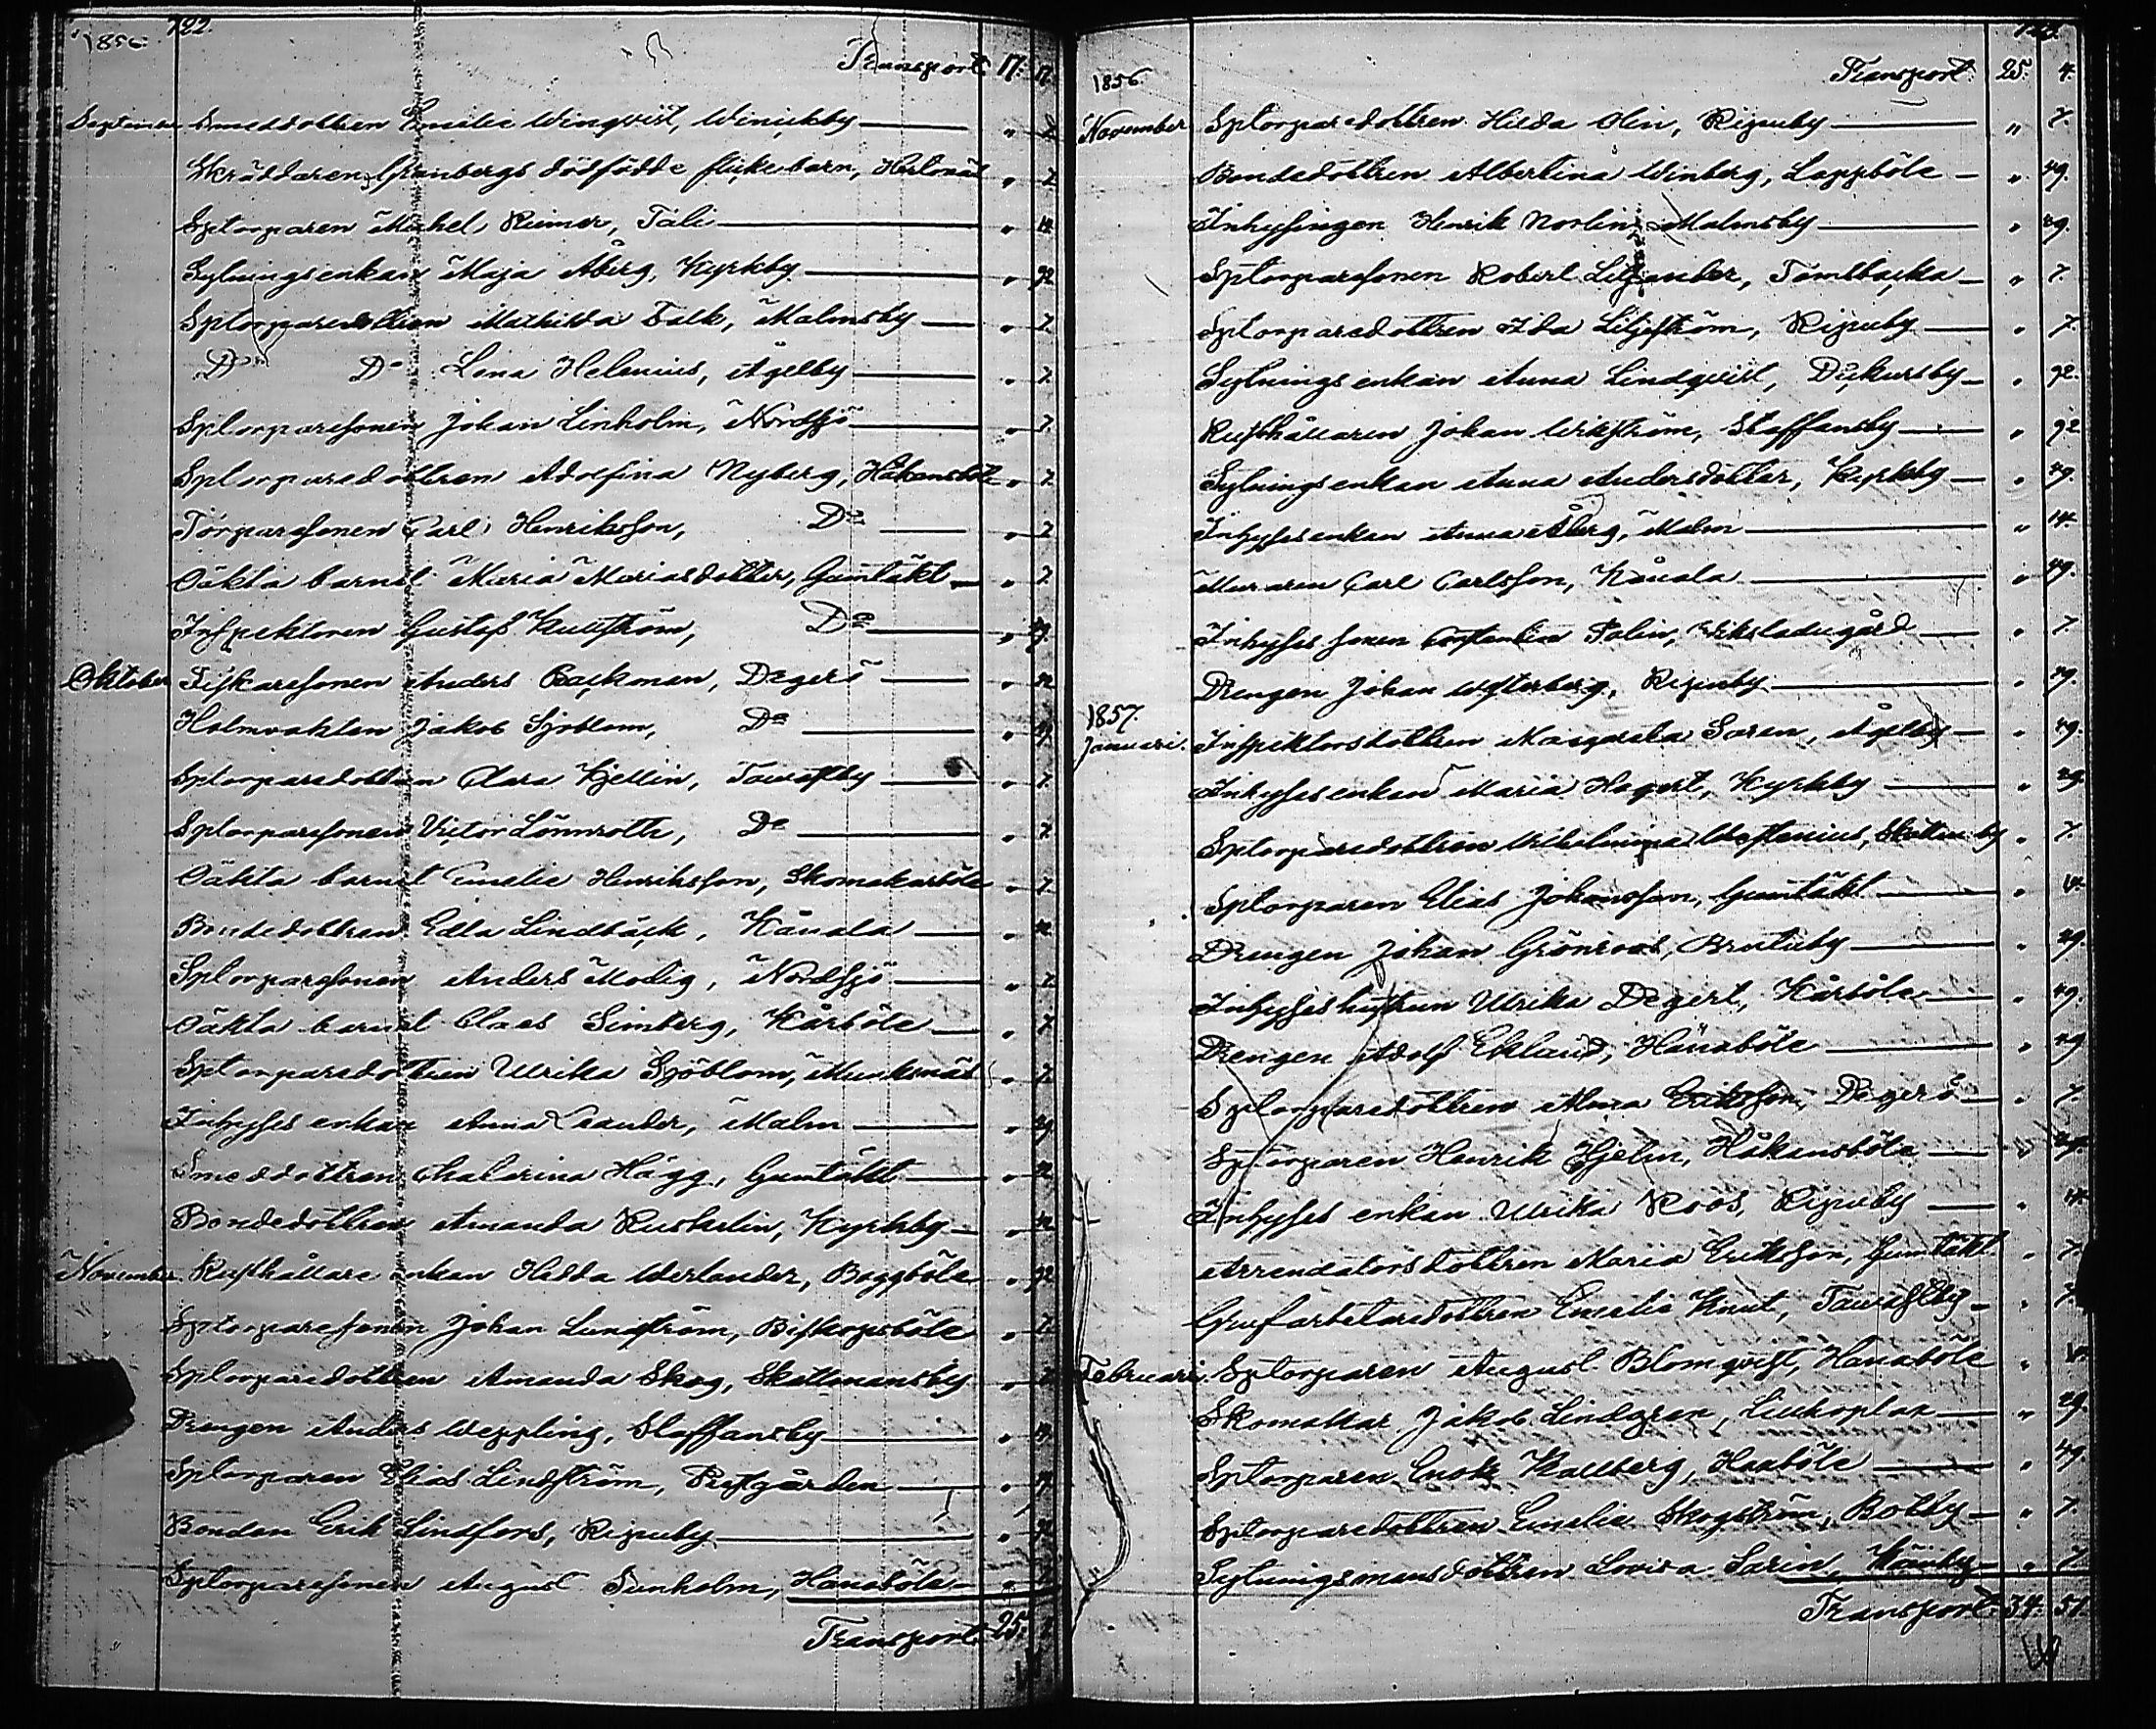 722.
1856.
Transport 17. 17.
September Smeddottren Emelie Winqvist, Winickby " 7
Skräddaren Granbergs dödfödde flickebarn, Hertonäs " 7
Sptorparen Mickel Reimer, Tali " 14
Sytningsenkan Maja Åberg, Kyrkby " 92
Sptorparedottren Mathilda Falk, Malmsby " 7
Do Do Lena Helenius, Ågelby " 7
Sptorparesonen Johan Linholm, Nordsjö " 7
Sptorparedottren Adolfina Nyberg, Håkansböle " 7
Torparesonen Carl Henriksson, Do " 7
Oäkta barnet Maria Mariasdotter, Gumtäkt " 7
Inspektoren Gustaf Kullström, Do " 49
Oktober Fiskaresonen Anders Backman, Degerö
Holmvakten Jakob Sjöblom, Do " 49
Sptorparedottren Clara Kjellin, Tavastby " 7
Sptorparesonen Victor Lönnroth, Do " 7
Oäkta barnet Emelie Henriksson, Skomakarböle " 7
Bondedottren Edla Lindbäck, Kånala
Sptorparesonen Anders Modig, Nordsjö " 7
Oäkta barnet Claes Simberg, Kårböle " 7
Sptorparedottren Ulrika Sjöblom, Munksnäs " 7
Inhyses enkan Anna Leander, Malm " 49
Smeddottren Chatarina Hägg, Gumtäkt
Bondedottren Amanda Ruskelin, Kyrkby
November Rusthållare enkan Hedda Werlander, Baggböle " 92
Sptorparesonen Johan Lundström, Biskopsböle " 7
Sptorparedottren Amanda Skog, Skattmansby " 7
Drengen Anders Weppling, Staffansby " 49
Sptorparen Elias Lindström, Prestgården
Bonden Erik Lindfors, Ripuby " 92
Sptorparesonen August Sunholm, Hanaböle " 7
Transport 25.
1856
Transport 25. 4.
November Sptorparedottren Hilda Olin, Ripuby " 7.
Bondedottren Albertina Winberg, Lappböle " 49.
Inhysingen Henrik Norlin, Malmsby " 49.
Sptorparesonen Robert Liljander, Tomtbacka " 7.
Sptorparedottren Ida Liljeström, Ripuby " 7.
Sytningsenkan Anna Lindqvist, Dickursby " 92.
Rusthållaren Johan Wikström, Staffansby " 92
Sytningsenkan Anna Andersdotter, Kyrkby " 49.
Inhysesenkan Anna Åberg, Malm " 14
Muraren Carl Carlsson, Kånala " 49.
Inhyses sonen Constantin Palin, Wiksladugård " 7.
Drengen Johan Westerberg, Ripuby " 49.
1857.
Januari. Inspektorsdottren Margareta Saren, Ågelby " 49.
Inhysesenkan Maria Hagert, Kyrkby " 49.
Sptorparedottren Wilhelmina Westenius, Skattm:by " 7.
Sptorparen Elias Johansson, Gumtäkt " 14.
Drengen Johan Grönroos, Brutuby " 49.
Inhyses hustrun Ulrika Degert, Kårböle " 49.
Drengen Adolf Eklund, Hanaböle " 49
Sptorparedottren Alma Eriksson, Degerö " 7.
Sptorparen Henrik Hjelm, Håkansböle " 49.
Inhyses enkan Ulrika Roos, Ripuby " 14
Arrendatorsdottren Maria Eriksson, Gumtäkt " 7.
Grufarbetaredottren Emelie Knut, Tavastby " 7.
Februari Sptorparen August Blomqvist, Hanaböle " 14
Skomakar Jakob Lindgren, " 49.
Sptorparen Enok Kallberg, Hanböle " 49.
Sptorparedottren Emelie Skogström, Botby " 7.
Sytningsmansdottren Lovisa Sarin, Kånby " 7.
Transport 34. 51.